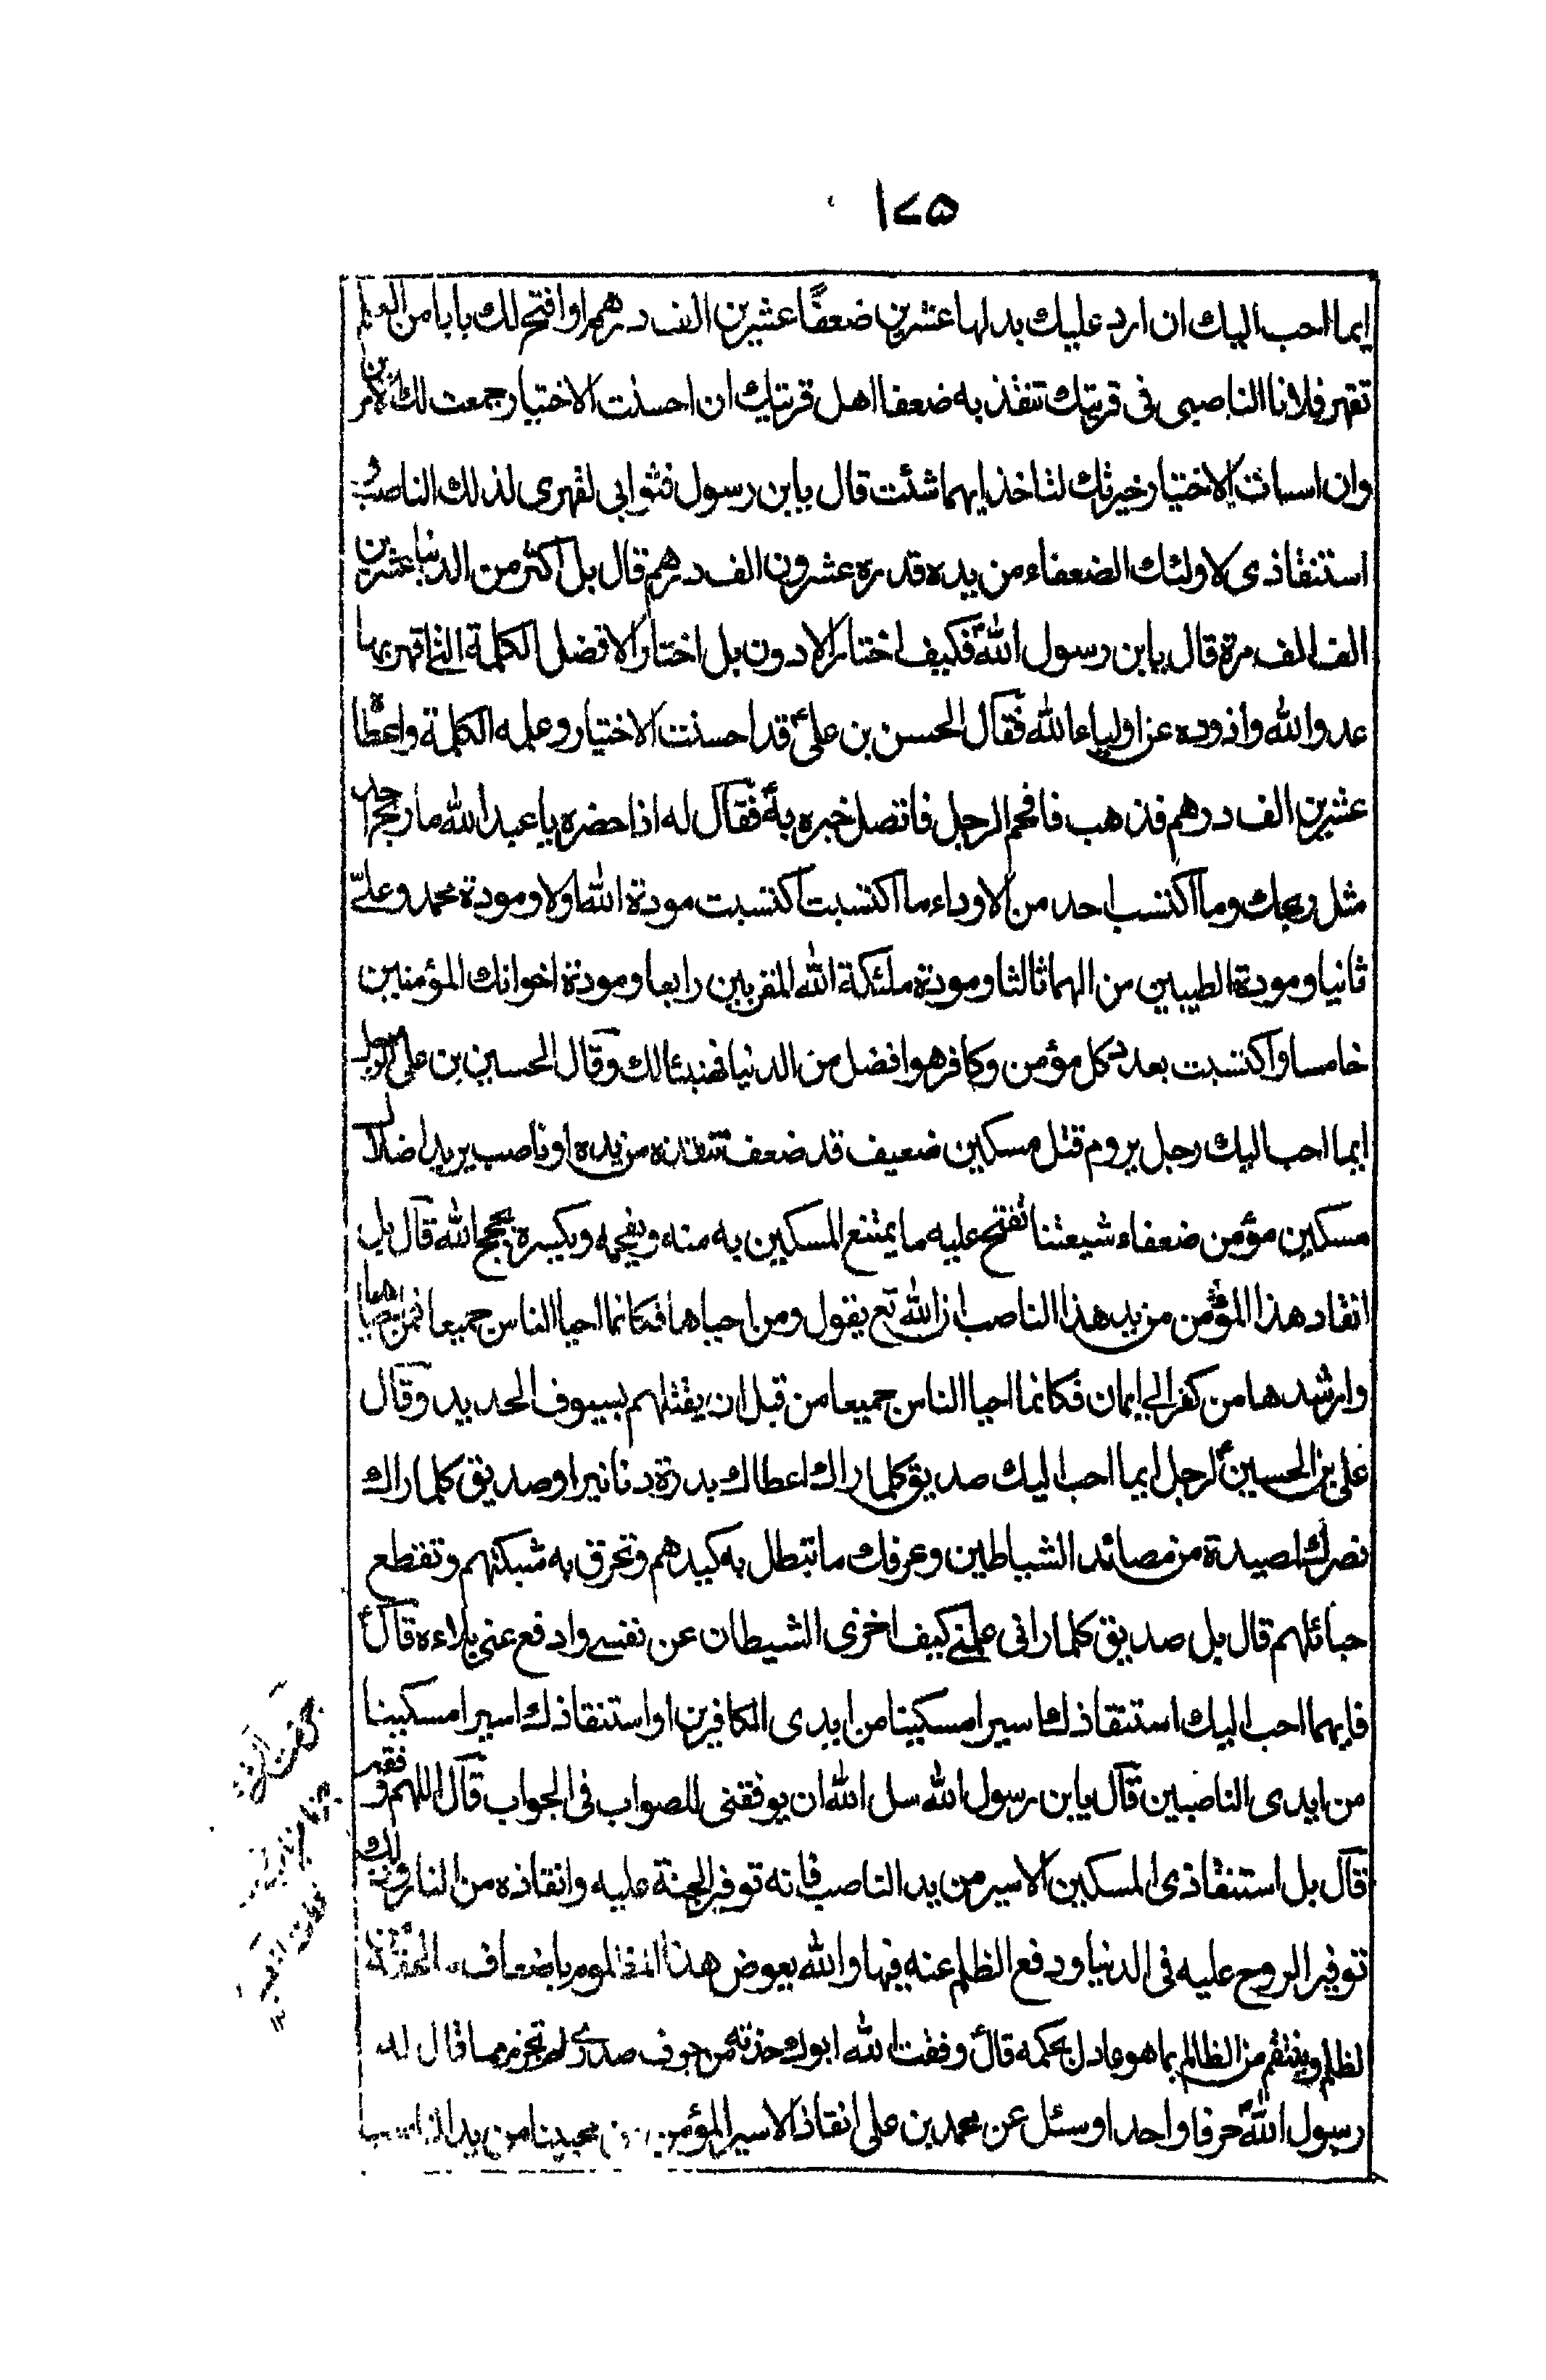 ١٧٥
ايما احب اليك ان ارد عليك بدلها عشرين ضعفا عشرين الف درهم او افتح لك بابا من العلم
تقهر فلانا الناصبى فى قريتك تنقذ به ضعفا اهل قريتك ان احسنت الاختيار جمعت لك الامرين
وان اسات الاختيار خيرتك لتاخذ ايهما شئت قال يابن رسول فثوابى لقهرى لذلك الناصب و
استنقاذى لاولئك الضعفاء من يده قدره عشرون الف درهم قال بل اكثر من الدنيا عشرين
الف الف مرة قال يابن رسول اللهؐ فكيف اختار الادون بل اختار الافضل الكلمة التى اقهر بها
عدو الله واذوده عن اولياء الله فقال الحسن بن علىؑ قد احسنت الاختيار وعلمه الكلمة واعطاه
عشرين الف درهم فذهب فافحم الرجل فاتصل خبره بهؑ فقال له اذا حضره يا عبد الله ما ربح احد
مثل ربحك وما اكتسب احد من الاوداء ما اكتسبت اكتسبت مودة الله اولا ومودة محمد وعلىّ
ثانيا ومودة الطيبين من الهما ثالثا ومودة ملئكة الله المقربين رابعا ومودة اخوانك المؤمنين
خامسا واكتسبت بعدد كل مؤمن وكافر هو افضل من الدنيا فهنيئا لك وقال الحسين بن علىؑ لرجل
ايما احب اليك رجل يروم قتل مسكين ضعيف قد ضعف تنقذه من يده او ناصب يريد اضلال
مسكين مؤمن ضعفاء شيعتنا تفتح عليه ما يمتنع المسكين به منه ويفحمه ويكسره بحجج الله قال بل
انقاذ هذا المؤمن من يد هذا الناصب ان الله تع يقول ومن احياها فكانما احيا الناس جميعا فمن احياها
وارشدها من كفر الى ايمان فكانما احيا الناس جميعا من قبل ان يقتلهم بسيوف الحديد وقال
على بن الحسينؑ لرجل ايما احب اليك صديق كلما راك اعطاك بدرة دنانير او صديق كلما راك
نصرك لمصيدة من مصائد الشياطين وعرفك ما تبطل به كيدهم وتحرق به شبكتهم وتقطع
حبائلهم قال بل صديق كلما رانى علمنى كيف اخزى الشيطان عن نفسى وادفع عنى بلاءه قالؑ
فايهما احب اليك استنقاذك اسيرا مسكينا من ايدى الكافرين او استنقاذك اسيرا مسكينا
من ايدى الناصبين قال يابن رسول الله سل الله ان يوفقنى للصواب فى الجواب قال اللهم وفقه
قال بل استنقاذى المسكين الاسير من يد الناصب فانه توفير الجنة عليه وانقاذه من النار وذلك
توفير الروح عليه فى الدنيا ودفع الظلم عنه فيها والله يعوض هذا المظلوم باضعاف
لظلم وينتقم من الظالم بما هو عادل بحكمه قالؑ وفقت لله ابوك حذته من جوف صدرى لم تخرم مما قال له
رسول اللهؐ حرفا واحدا وسئل عن محمد بن على انقاذ الاسير المؤمن من محبينا من يد الناصب